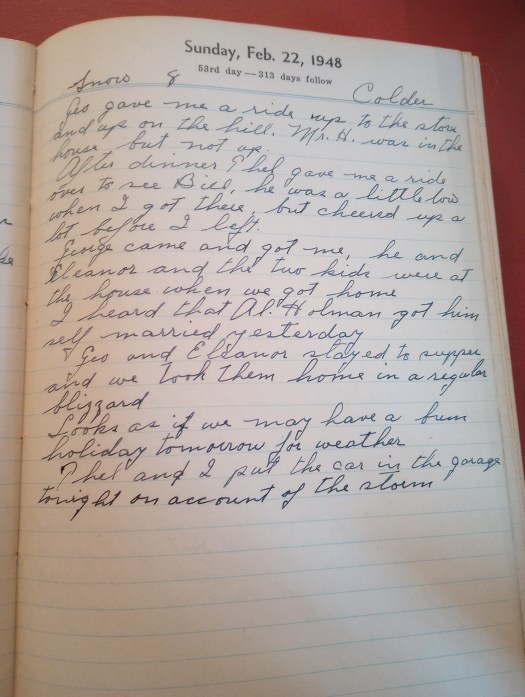 Sunday, Feb. 22, 1948
53rd day — 313 days follow
Snow & Colder
Geo gave me a ride up to the store
and up on the hill. Mr. H. was in the
house, but not up.
After dinner Phel gave me a ride
over to see Bill, he was a little low
when I got there, but cheered up a
lot before I left.
George came and got me, he and
Eleanor and the two kids were at
the house when we got home
I heard that Al. Holman got him
self married yesterday
Geo and Eleanor stayed to supper
and we took them home in a regular
blizzard
Looks as if we may have a bum
holiday tomorrow for weather
Phel and I put the car in the garage
tonight on account of the storm